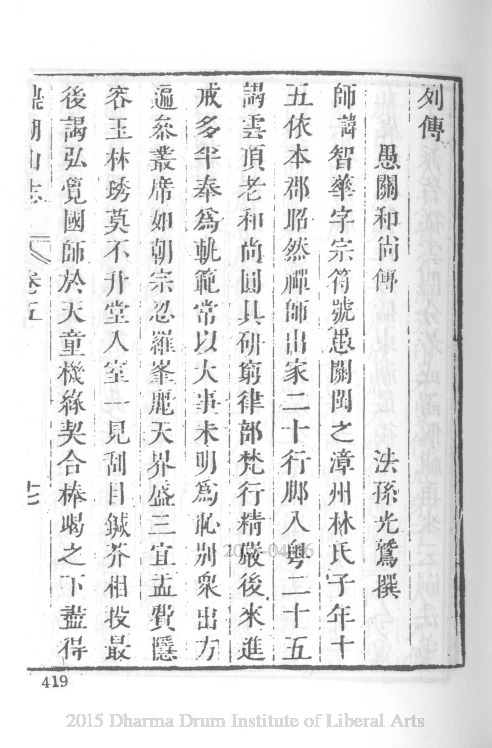 列傳
愚關和尚傳 法孫光鷲撰
師諱智華字宗符號愚關閩之漳州林氏子年十
五依本郡昭然禪師出家二十行脚入粵二十五
謁雲頂老和尚圓具研窮律部梵行精嚴後來進
戒多半奉為軌範常以大事未明為恥別衆出方
遍叅叢席如朝宗忍羅峯麗天界盛三宜盂費隱
容玉林琇莫不升堂入室一見刮目鍼芥相投最
後謁弘覺國師於天童機緣契合棒喝之下盡得
鼎湖山志 卷五
419
2015 Dharma Drum Institute of Liberal Arts